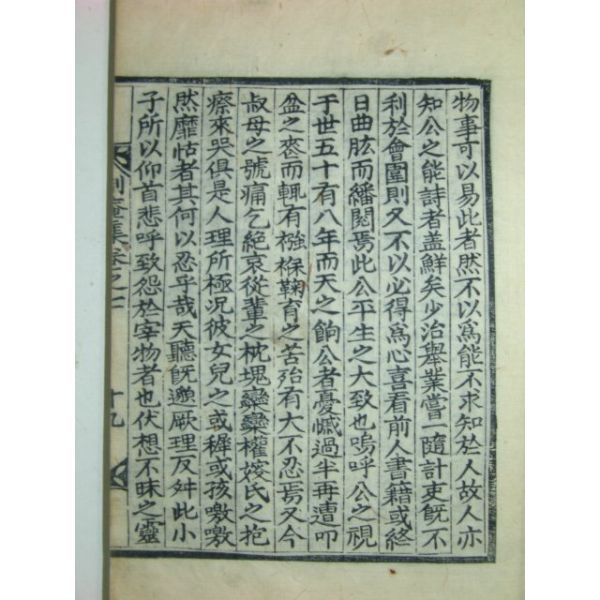 物事可以易此者然不以爲能不求知於人故人亦
知公之能詩者盖鮮矣少治擧業嘗一隨計吏旣不
利於會圍則又不以必得爲心喜看前人書籍或終
日曲肱而繙閱焉此公平生之大致也嗚呼公之視
于世五十有八年而天之餉公者憂慽過半再遭叩
盆之喪而輒有襁褓鞠育之苦殆有大不忍焉又今
叔母之號痛乞絶哀從輩之枕塊欒欒權嫂氏之抱
瘵來哭俱是人理所極况彼女兒之或穉或孩噭噭
然靡怙者其何以忍乎哉天聽旣邈厥理反舛此小
子所以仰首悲呼致怨於宰物者也伏想不昧之靈
菴集卷之七
十九